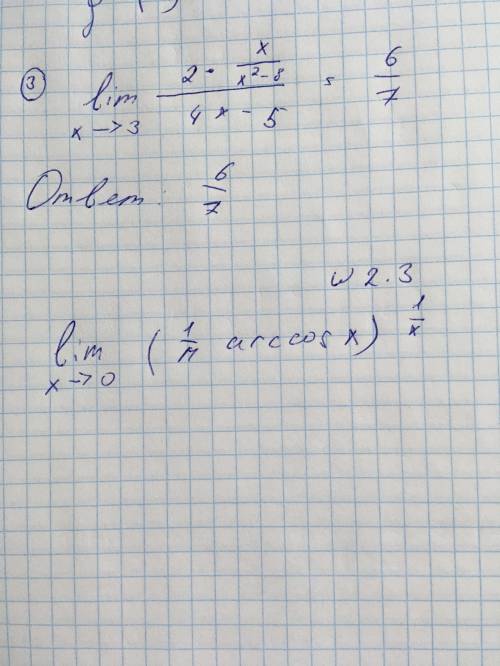 ③ lim x→3 (2 · x/(x²-8)) / (4x - 5) = 6/7
Ответ: 6/7
№2.3
lim x→0 (1/π arccos x)^(1/x)